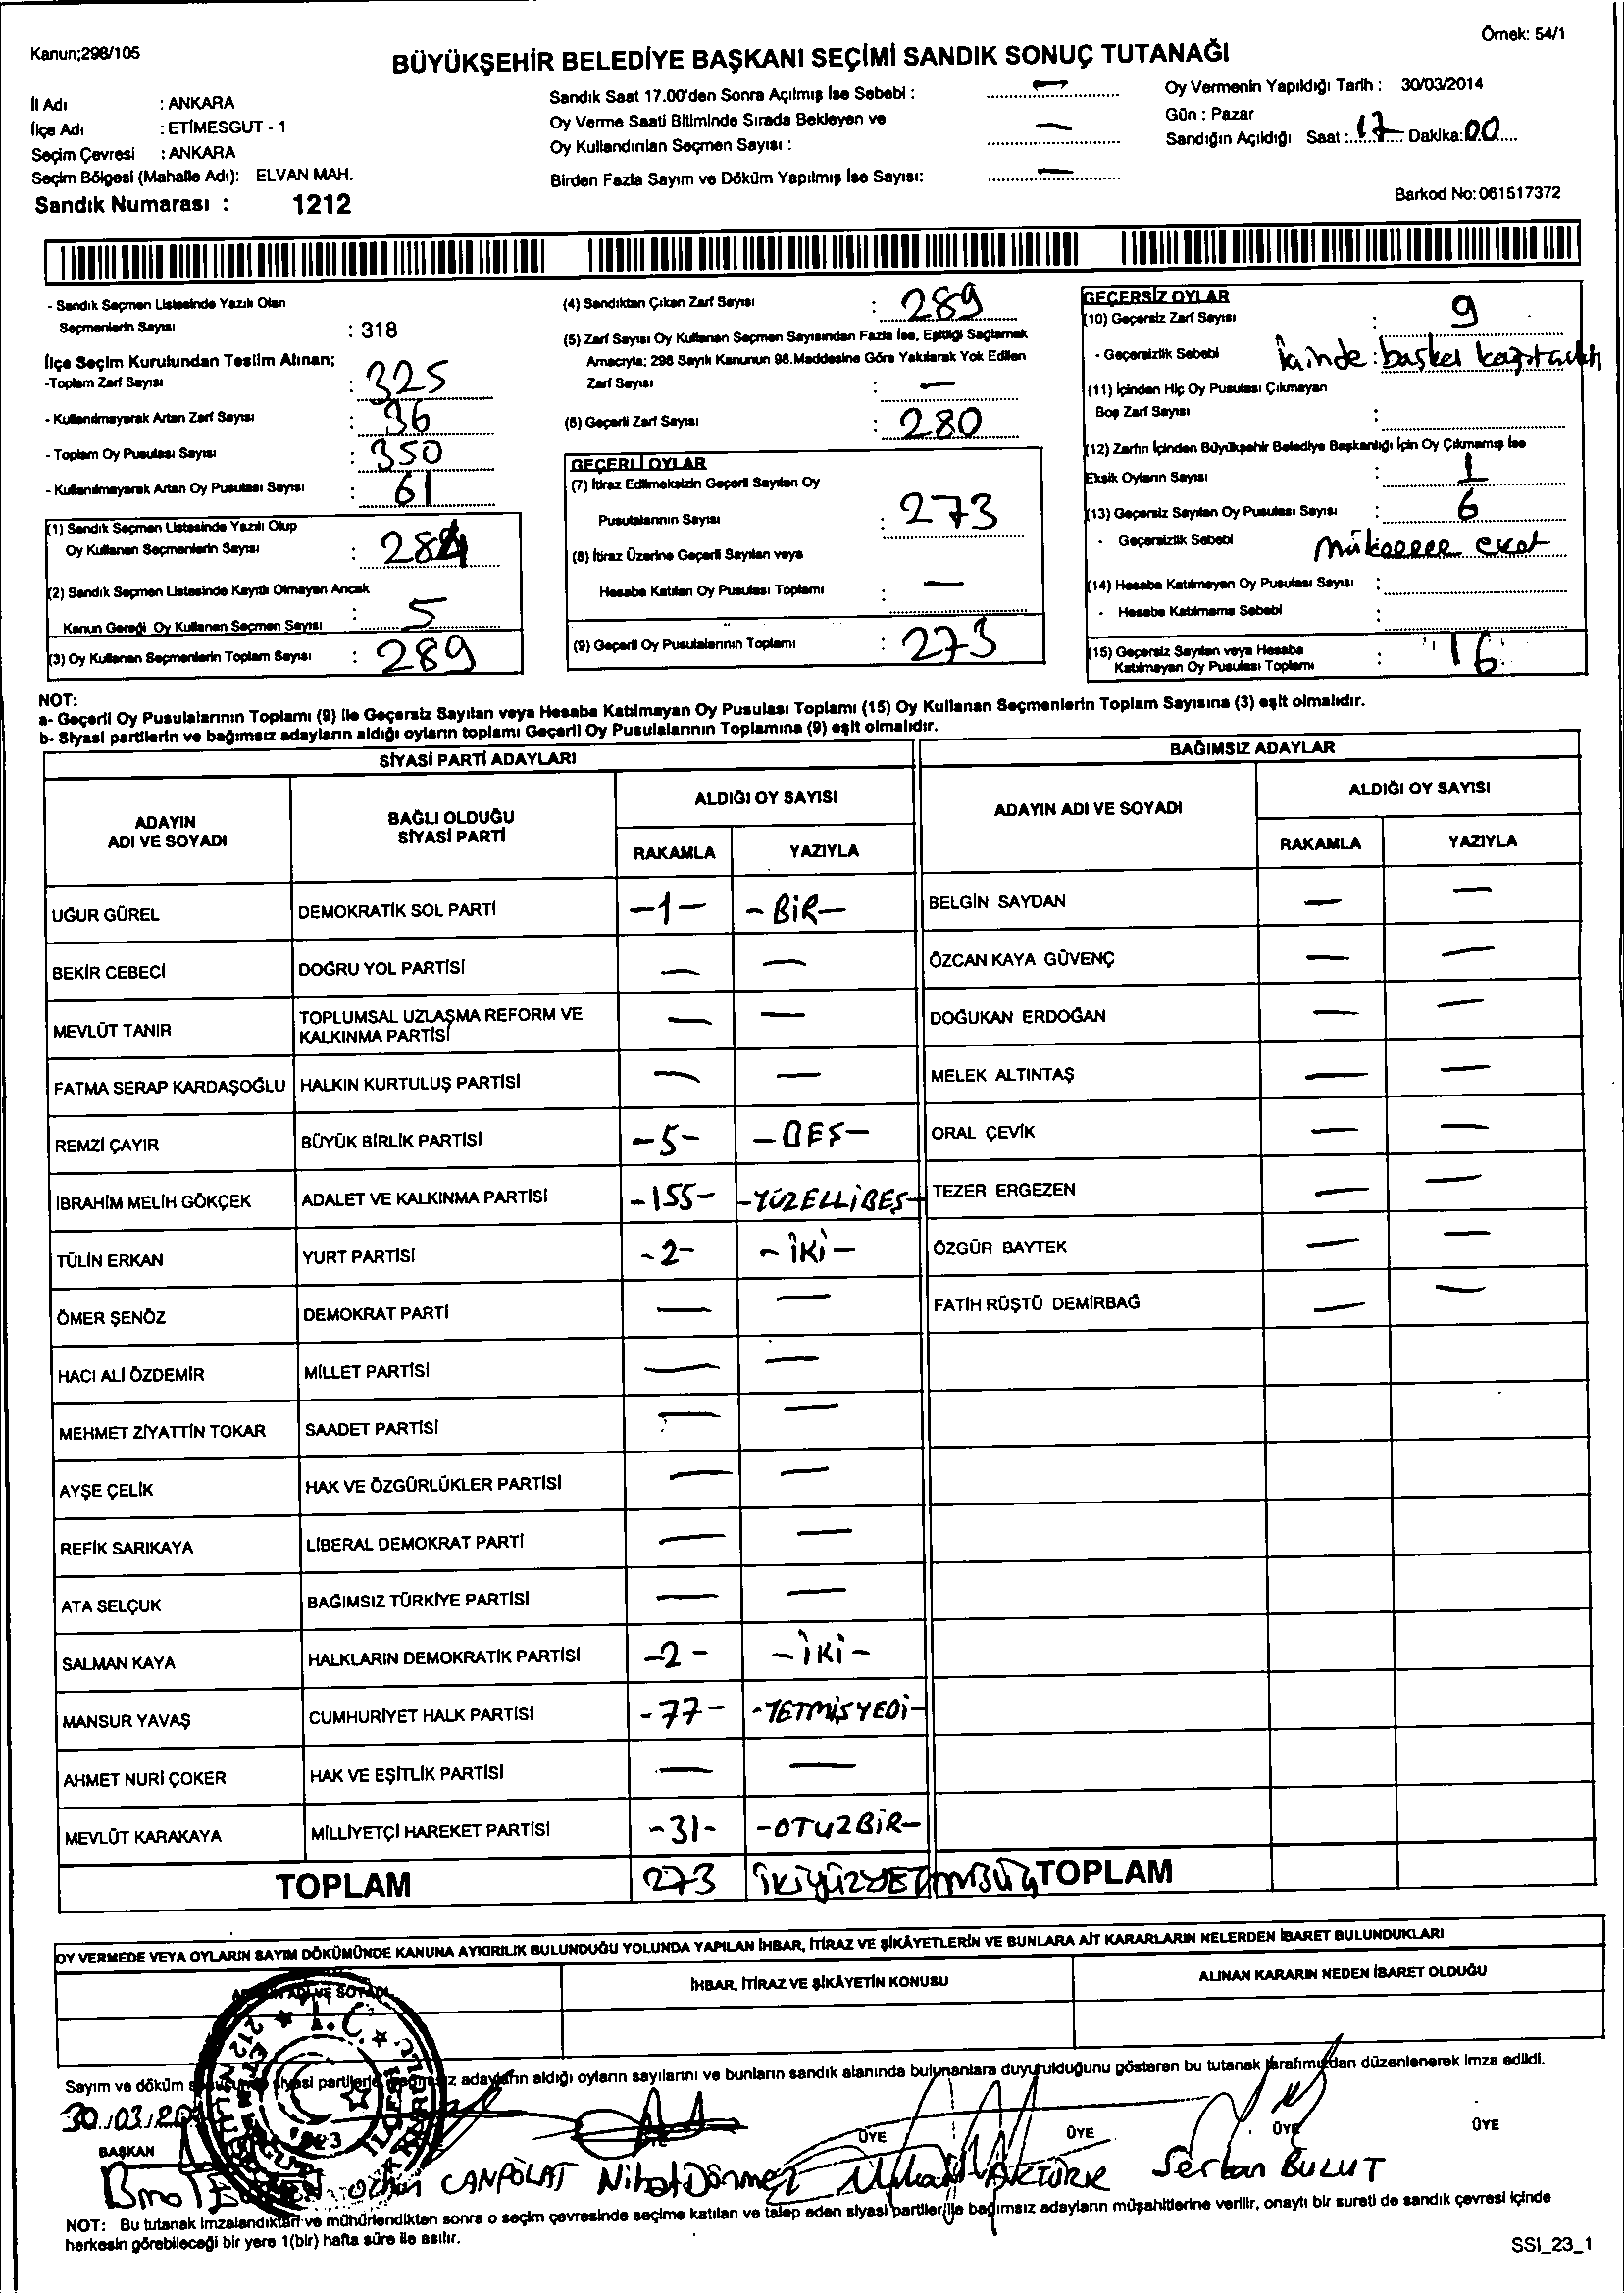 Kanun;298/105
Örnek: 54/1
BÜYÜKŞEHİR BELEDİYE BAŞKANI SEÇİMİ SANDIK SONUÇ TUTANAĞI
İl Adı : ANKARA
İlçe Adı : ETİMESGUT - 1
Seçim Çevresi : ANKARA
Seçim Bölgesi (Mahalle Adı): ELVAN MAH.
Sandık Numarası : 1212
Sandık Saat 17.00'den Sonra Açılmış İse Sebebi : —
Oy Verme Saati Bitiminde Sırada Bekleyen ve
Oy Kullandırılan Seçmen Sayısı : —
Birden Fazla Sayım ve Döküm Yapılmış İse Sayısı: —
Oy Vermenin Yapıldığı Tarih : 30/03/2014
Gün : Pazar
Sandığın Açıldığı Saat : 17 Dakika: 00
Barkod No: 061517372
- Sandık Seçmen Listesinde Yazılı Olan
Seçmenlerin Sayısı : 318
İlçe Seçim Kurulundan Teslim Alınan;
-Toplam Zarf Sayısı : 325
- Kullanılmayarak Artan Zarf Sayısı : 36
- Toplam Oy Pusulası Sayısı : 350
- Kullanılmayarak Artan Oy Pusulası Sayısı : 61
(1) Sandık Seçmen Listesinde Yazılı Olup
Oy Kullanan Seçmenlerin Sayısı : 284
(2) Sandık Seçmen Listesinde Kayıtlı Olmayan Ancak
Kanun Gereği Oy Kullanan Seçmen Sayısı : 5
(3) Oy Kullanan Seçmenlerin Toplam Sayısı : 289
(4) Sandıktan Çıkan Zarf Sayısı : 289
(5) Zarf Sayısı Oy Kullanan Seçmen Sayısından Fazla İse, Eşitliği Sağlamak
Amacıyla; 298 Sayılı Kanunun 98.Maddesine Göre Yakılarak Yok Edilen
Zarf Sayısı : —
(6) Geçerli Zarf Sayısı : 280
GEÇERLİ OYLAR
(7) İtiraz Edilmeksizin Geçerli Sayılan Oy
Pusulalarının Sayısı : 273
(8) İtiraz Üzerine Geçerli Sayılan veya
Hesaba Katılan Oy Pusulası Toplamı : —
(9) Geçerli Oy Pusulalarının Toplamı : 273
GEÇERSİZ OYLAR
(10) Geçersiz Zarf Sayısı : 9
- Geçersizlik Sebebi : içinde başka
(11) İçinden Hiç Oy Pusulası Çıkmayan
Boş Zarf Sayısı :
(12) Zarfın İçinden Büyükşehir Belediye Başkanlığı İçin Oy Çıkmamış İse
Eksik Oyların Sayısı : 1
(13) Geçersiz Sayılan Oy Pusulası Sayısı : 6
- Geçersizlik Sebebi
(14) Hesaba Katılmayan Oy Pusulası Sayısı :
- Hesaba Katılmama Sebebi :
(15) Geçersiz Sayılan veya Hesaba
Katılmayan Oy Pusulası Toplamı : 16
NOT:
a- Geçerli Oy Pusulalarının Toplamı (9) ile Geçersiz Sayılan veya Hesaba Katılmayan Oy Pusulası Toplamı (15) Oy Kullanan Seçmenlerin Toplam Sayısına (3) eşit olmalıdır.
b- Siyasi partilerin ve bağımsız adayların aldığı oyların toplamı Geçerli Oy Pusulalarının Toplamına (9) eşit olmalıdır.
SİYASİ PARTİ ADAYLARI
ADAYIN ADI VE SOYADI BAĞLI OLDUĞU SİYASİ PARTİ ALDIĞI OY SAYISI
RAKAMLA YAZIYLA
UĞUR GÜREL DEMOKRATİK SOL PARTİ -1- -BİR-
BEKİR CEBECİ DOĞRU YOL PARTİSİ — —
MEVLÜT TANIR TOPLUMSAL UZLAŞMA REFORM VE
KALKINMA PARTİSİ — —
FATMA SERAP KARDAŞOĞLU HALKIN KURTULUŞ PARTİSİ — —
REMZİ ÇAYIR BÜYÜK BİRLİK PARTİSİ -5- -BEŞ-
İBRAHİM MELİH GÖKÇEK ADALET VE KALKINMA PARTİSİ -155- -YÜZELLİBEŞ-
TÜLİN ERKAN YURT PARTİSİ -2- -İKİ-
ÖMER ŞENÖZ DEMOKRAT PARTİ — —
HACI ALİ ÖZDEMİR MİLLET PARTİSİ — —
MEHMET ZİYATTİN TOKAR SAADET PARTİSİ — —
AYŞE ÇELİK HAK VE ÖZGÜRLÜKLER PARTİSİ — —
REFİK SARIKAYA LİBERAL DEMOKRAT PARTİ — —
ATA SELÇUK BAĞIMSIZ TÜRKİYE PARTİSİ — —
SALMAN KAYA HALKLARIN DEMOKRATİK PARTİSİ -2- -İKİ-
MANSUR YAVAŞ CUMHURİYET HALK PARTİSİ -77- -YETMİŞYEDİ-
AHMET NURİ ÇOKER HAK VE EŞİTLİK PARTİSİ — —
MEVLÜT KARAKAYA MİLLİYETÇİ HAREKET PARTİSİ -31- -OTUZBİR-
TOPLAM 273 İKİYÜZYETMİŞÜÇ
BAĞIMSIZ ADAYLAR
ADAYIN ADI VE SOYADI ALDIĞI OY SAYISI
RAKAMLA YAZIYLA
BELGİN SAYDAN — —
ÖZCAN KAYA GÜVENÇ — —
DOĞUKAN ERDOĞAN — —
MELEK ALTINTAŞ — —
ORAL ÇEVİK — —
TEZER ERGEZEN — —
ÖZGÜR BAYTEK — —
FATİH RÜŞTÜ DEMİRBAĞ — —
TOPLAM
OY VERMEDE VEYA OYLARIN SAYIM DÖKÜMÜNDE KANUNA AYKIRILIK BULUNDUĞU YOLUNDA YAPILAN İHBAR, İTİRAZ VE ŞİKÂYETLERİN VE BUNLARA AİT KARARLARIN NELERDEN İBARET BULUNDUKLARI
ADI VE SOYADI İHBAR, İTİRAZ VE ŞİKÂYETİN KONUSU ALINAN KARARIN NEDEN İBARET OLDUĞU
T.C.
Sayım ve döküm siyasi adayların aldığı oyların sayılarını ve bunların sandık alanında bulunanlara duyurulduğunu gösteren bu tutanak tarafımızdan düzenlenerek imza edildi.
30.03.20
BAŞKAN ÜYE ÜYE ÜYE ÜYE ÜYE
CANPOLAT Nihat Dönmez AKTÜRK Serkan BULUT
NOT: Bu tutanak imzalandıktan ve mühürlendikten sonra o seçim çevresinde seçime katılan ve talep eden siyasi partiler ile bağımsız adayların müşahitlerine verilir, onaylı bir sureti de sandık çevresi içinde
herkesin görebileceği bir yere 1(bir) hafta süre ile asılır.
SSI_23_1